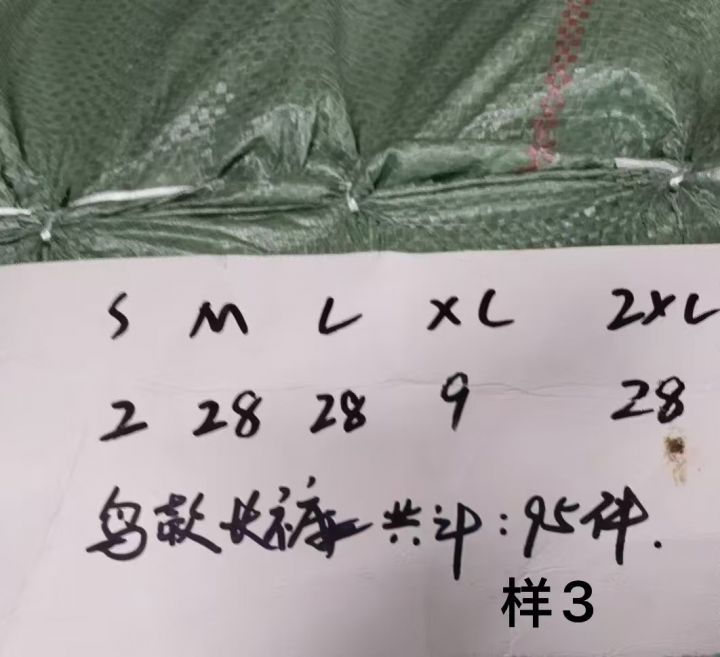 S M L XL 2XL
2 28 28 9 28
鸟款长裤 共计:95件.
样3